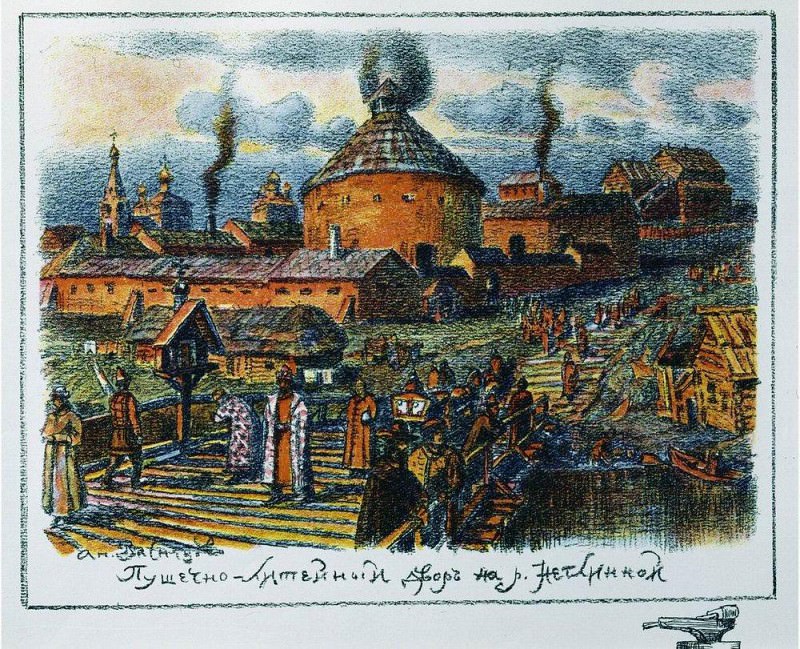 Ап. Васнецов
Пушечно-литейный дворъ на р. Неглинной